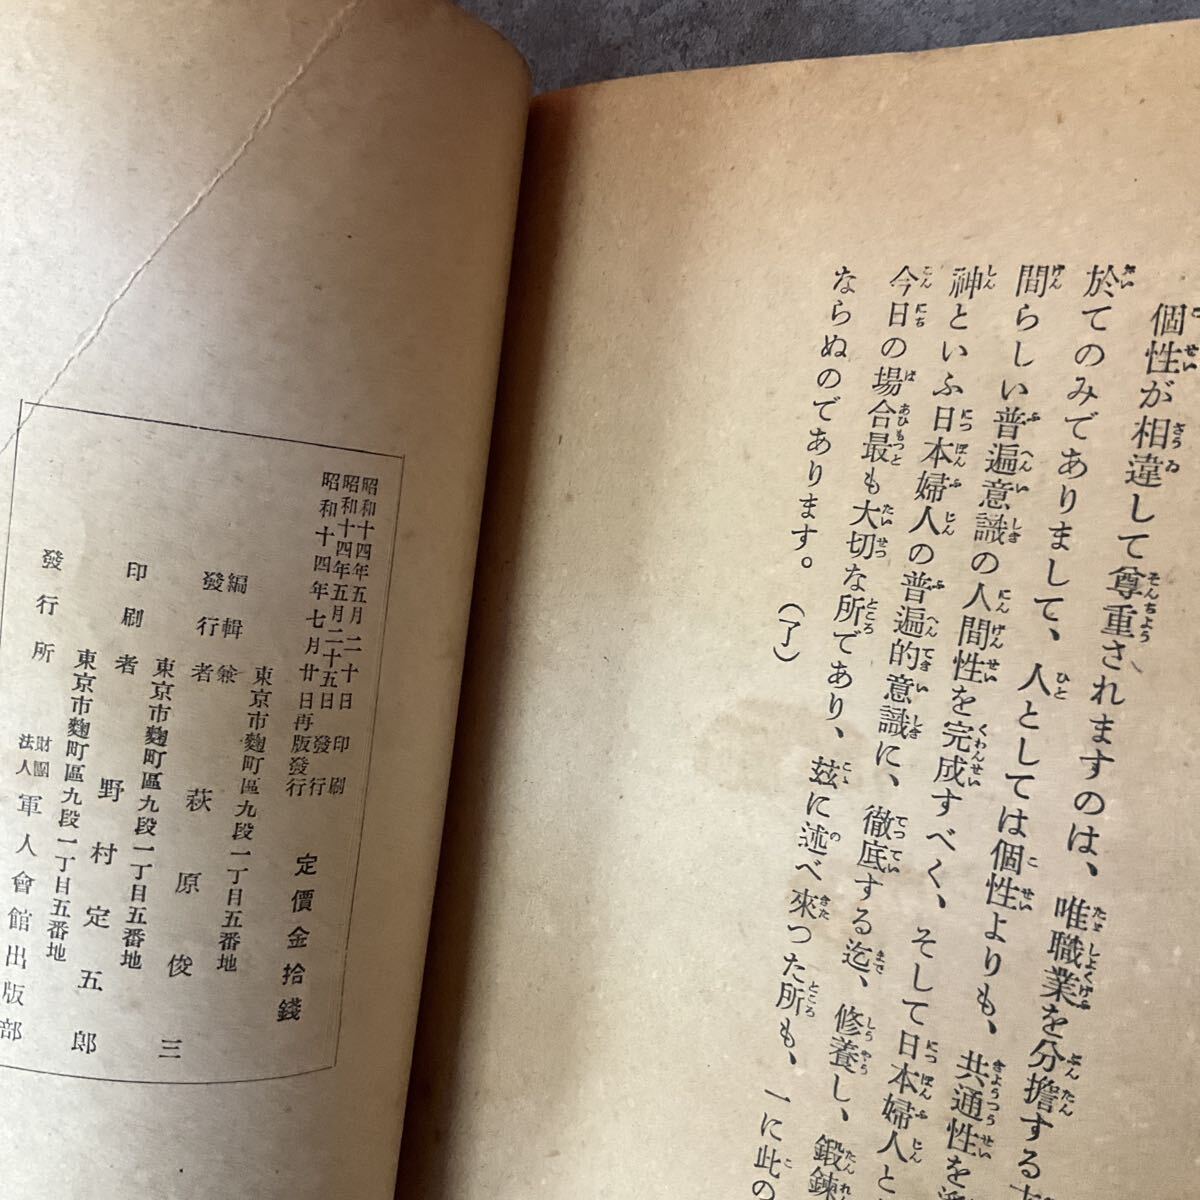 個性が相違して尊重されますのは、唯職業を分擔する
於てのみでありまして、人としては個性よりも、共通性を
間らしい普遍意識の人間性を完成すべく、そして日本婦人と
神といふ日本婦人の普遍的意識に、徹底する迄、修養し、鍛鍊
今日の場合最も大切な所であり、玆に述べ來つた所も、一に此の
ならぬのであります。（了）
昭和十四年五月二十日印刷
昭和十四年五月二十五日發行
昭和十四年七月廿日再版發行
定價金拾錢
東京市麴町區九段一丁目五番地
編輯兼
發行者 萩原俊三
東京市麴町區九段一丁目五番地
印刷者 野村定五郎
東京市麴町區九段一丁目五番地
發行所 財團法人 軍人會館出版部